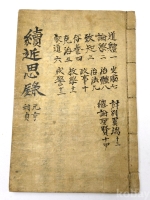 續近思錄
元亨
利貞
道體一
論學二
致知三
存養四
克治五
家道六
出處七
治體八
治法九
政事十
教學十一
戒警十二
總論聖賢十四